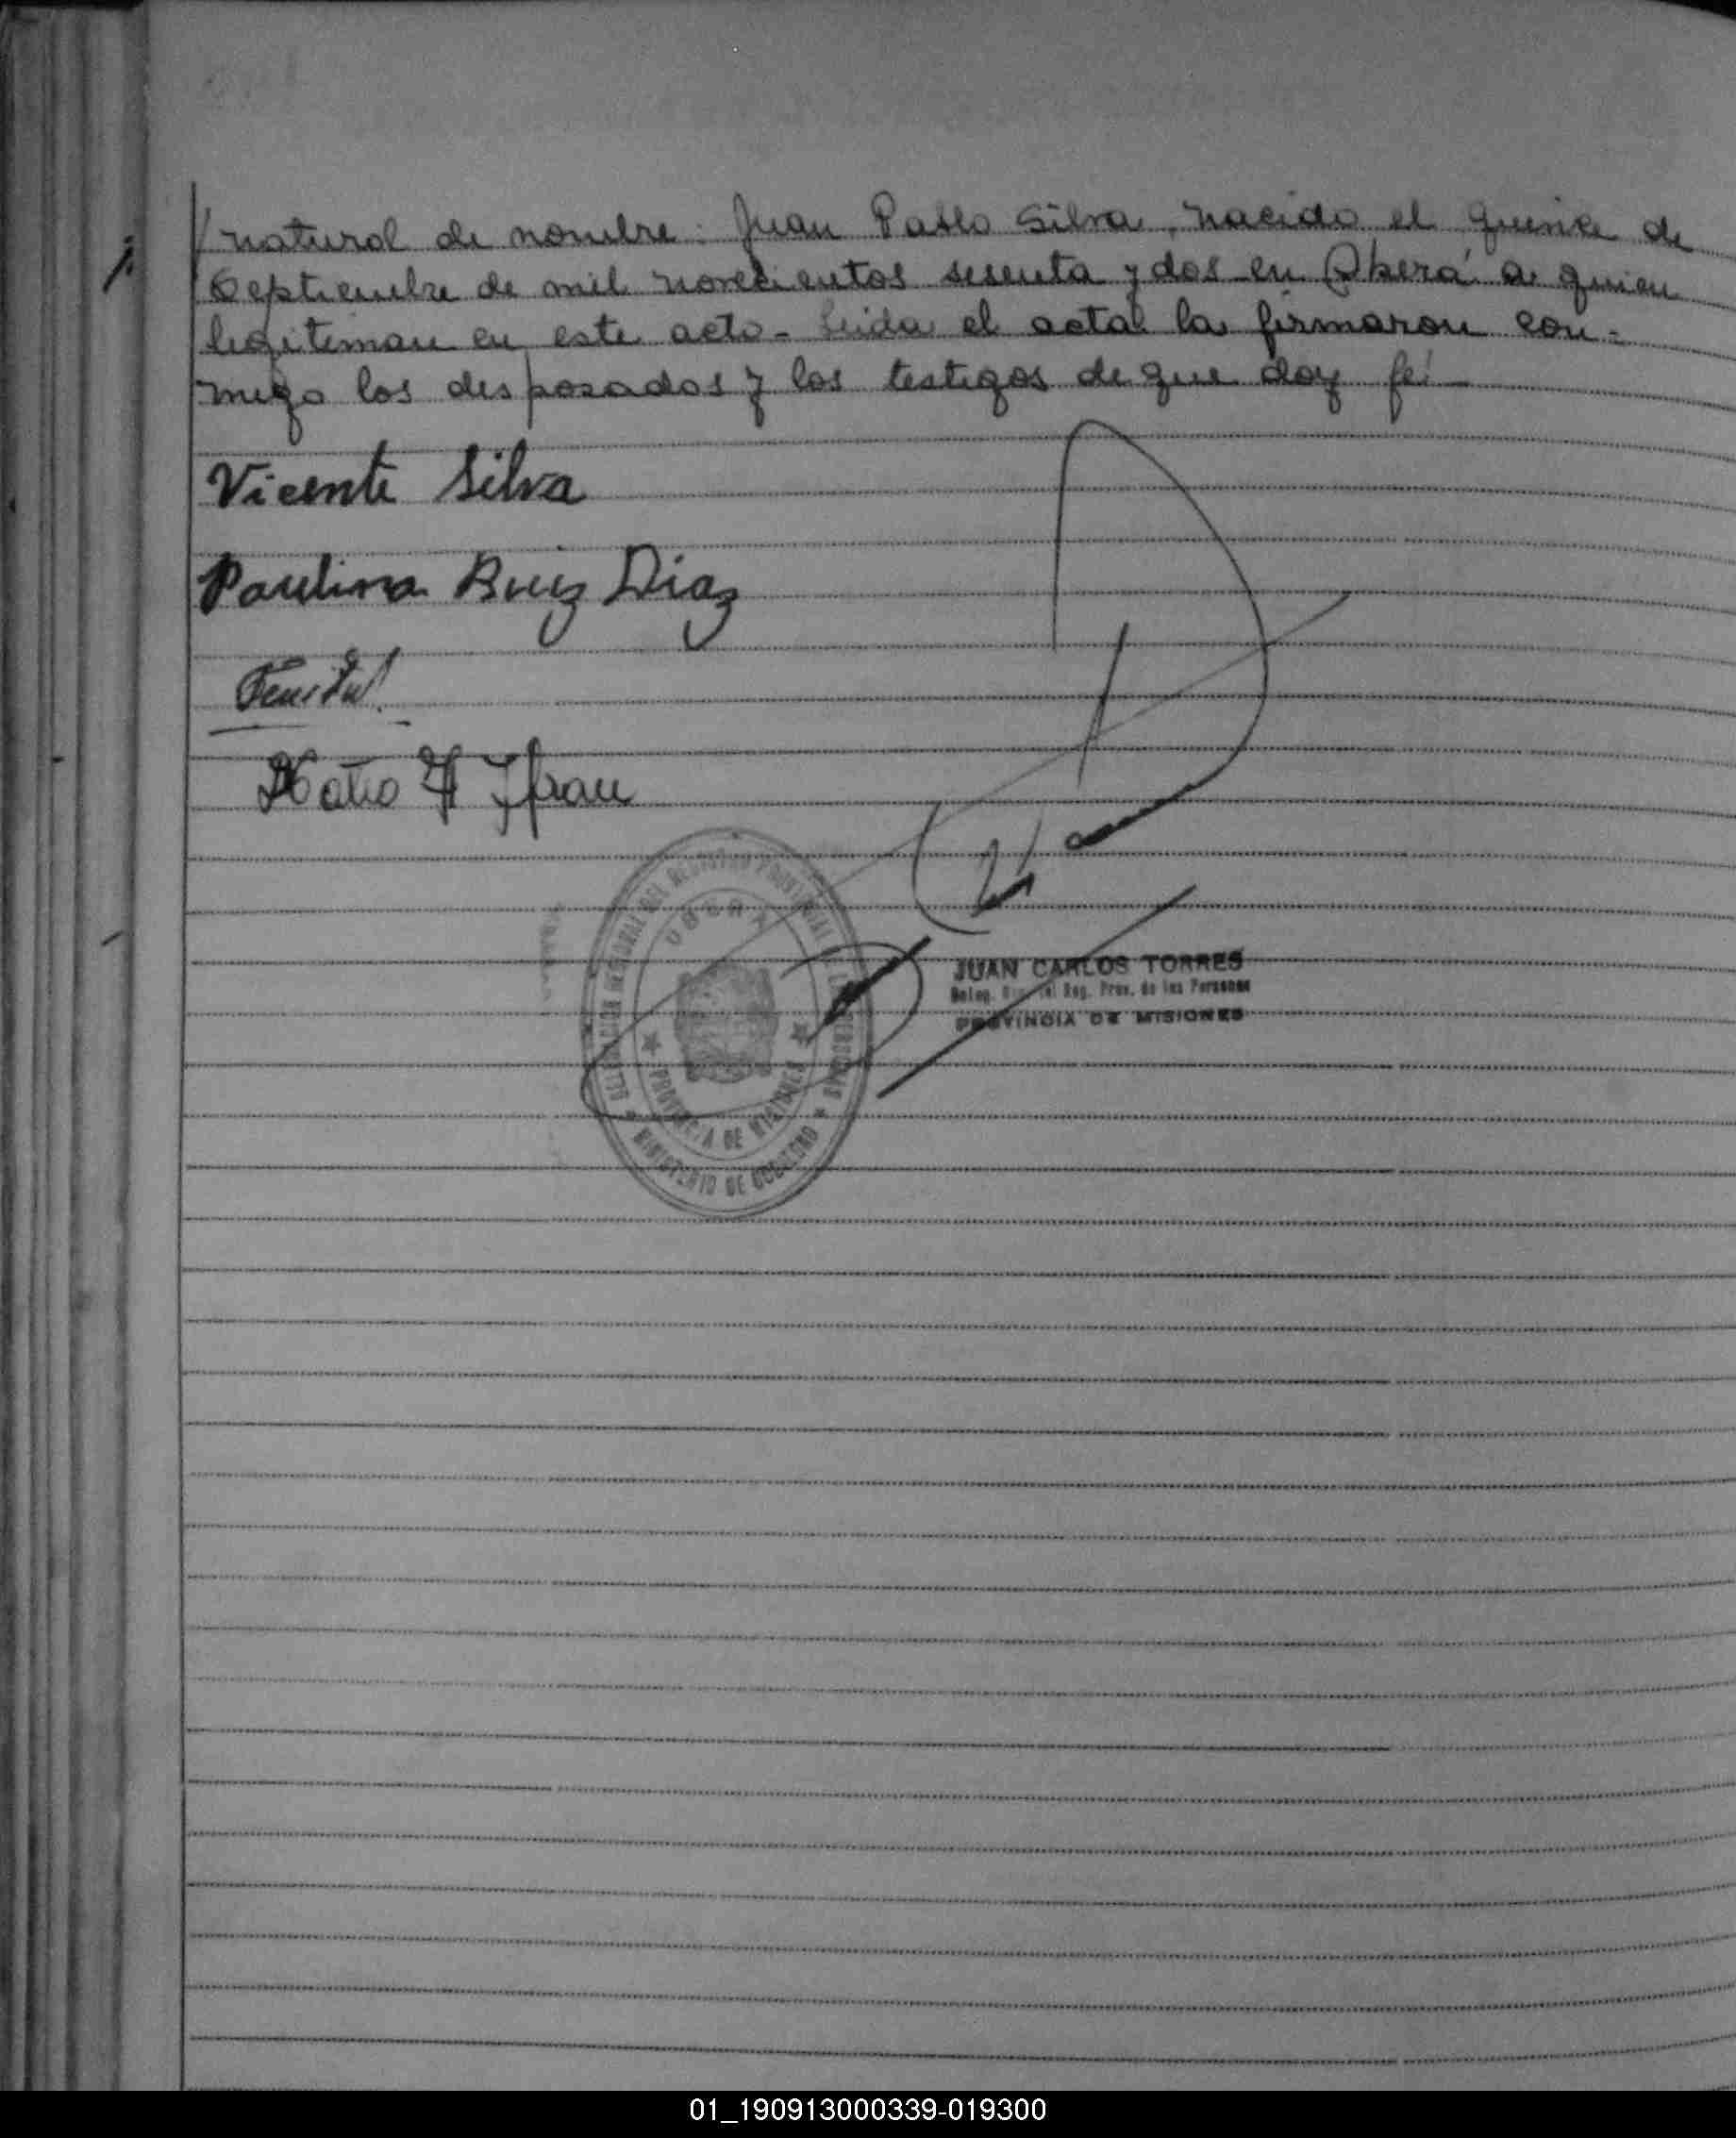 / natural de nombre: Juan Pablo Silva, nacido el quince de
Septiembre de mil novecientos sesenta y dos en Oberá a quien
legitiman en este acto - Leida el acta la firmaron con=
migo los desposados y los testigos de que doy fé -
Vicente Silva
Paulina Ruiz Diaz
JUAN CARLOS TORRES
Deleg. Reg. Prov. de las Personas
PROVINCIA DE MISIONES
DELEGACION DEL REGISTRO PROVINCIAL DE LAS PERSONAS
OBERA
PROVINCIA DE MISIONES
MINISTERIO DE GOBIERNO
01_190913000339-019300